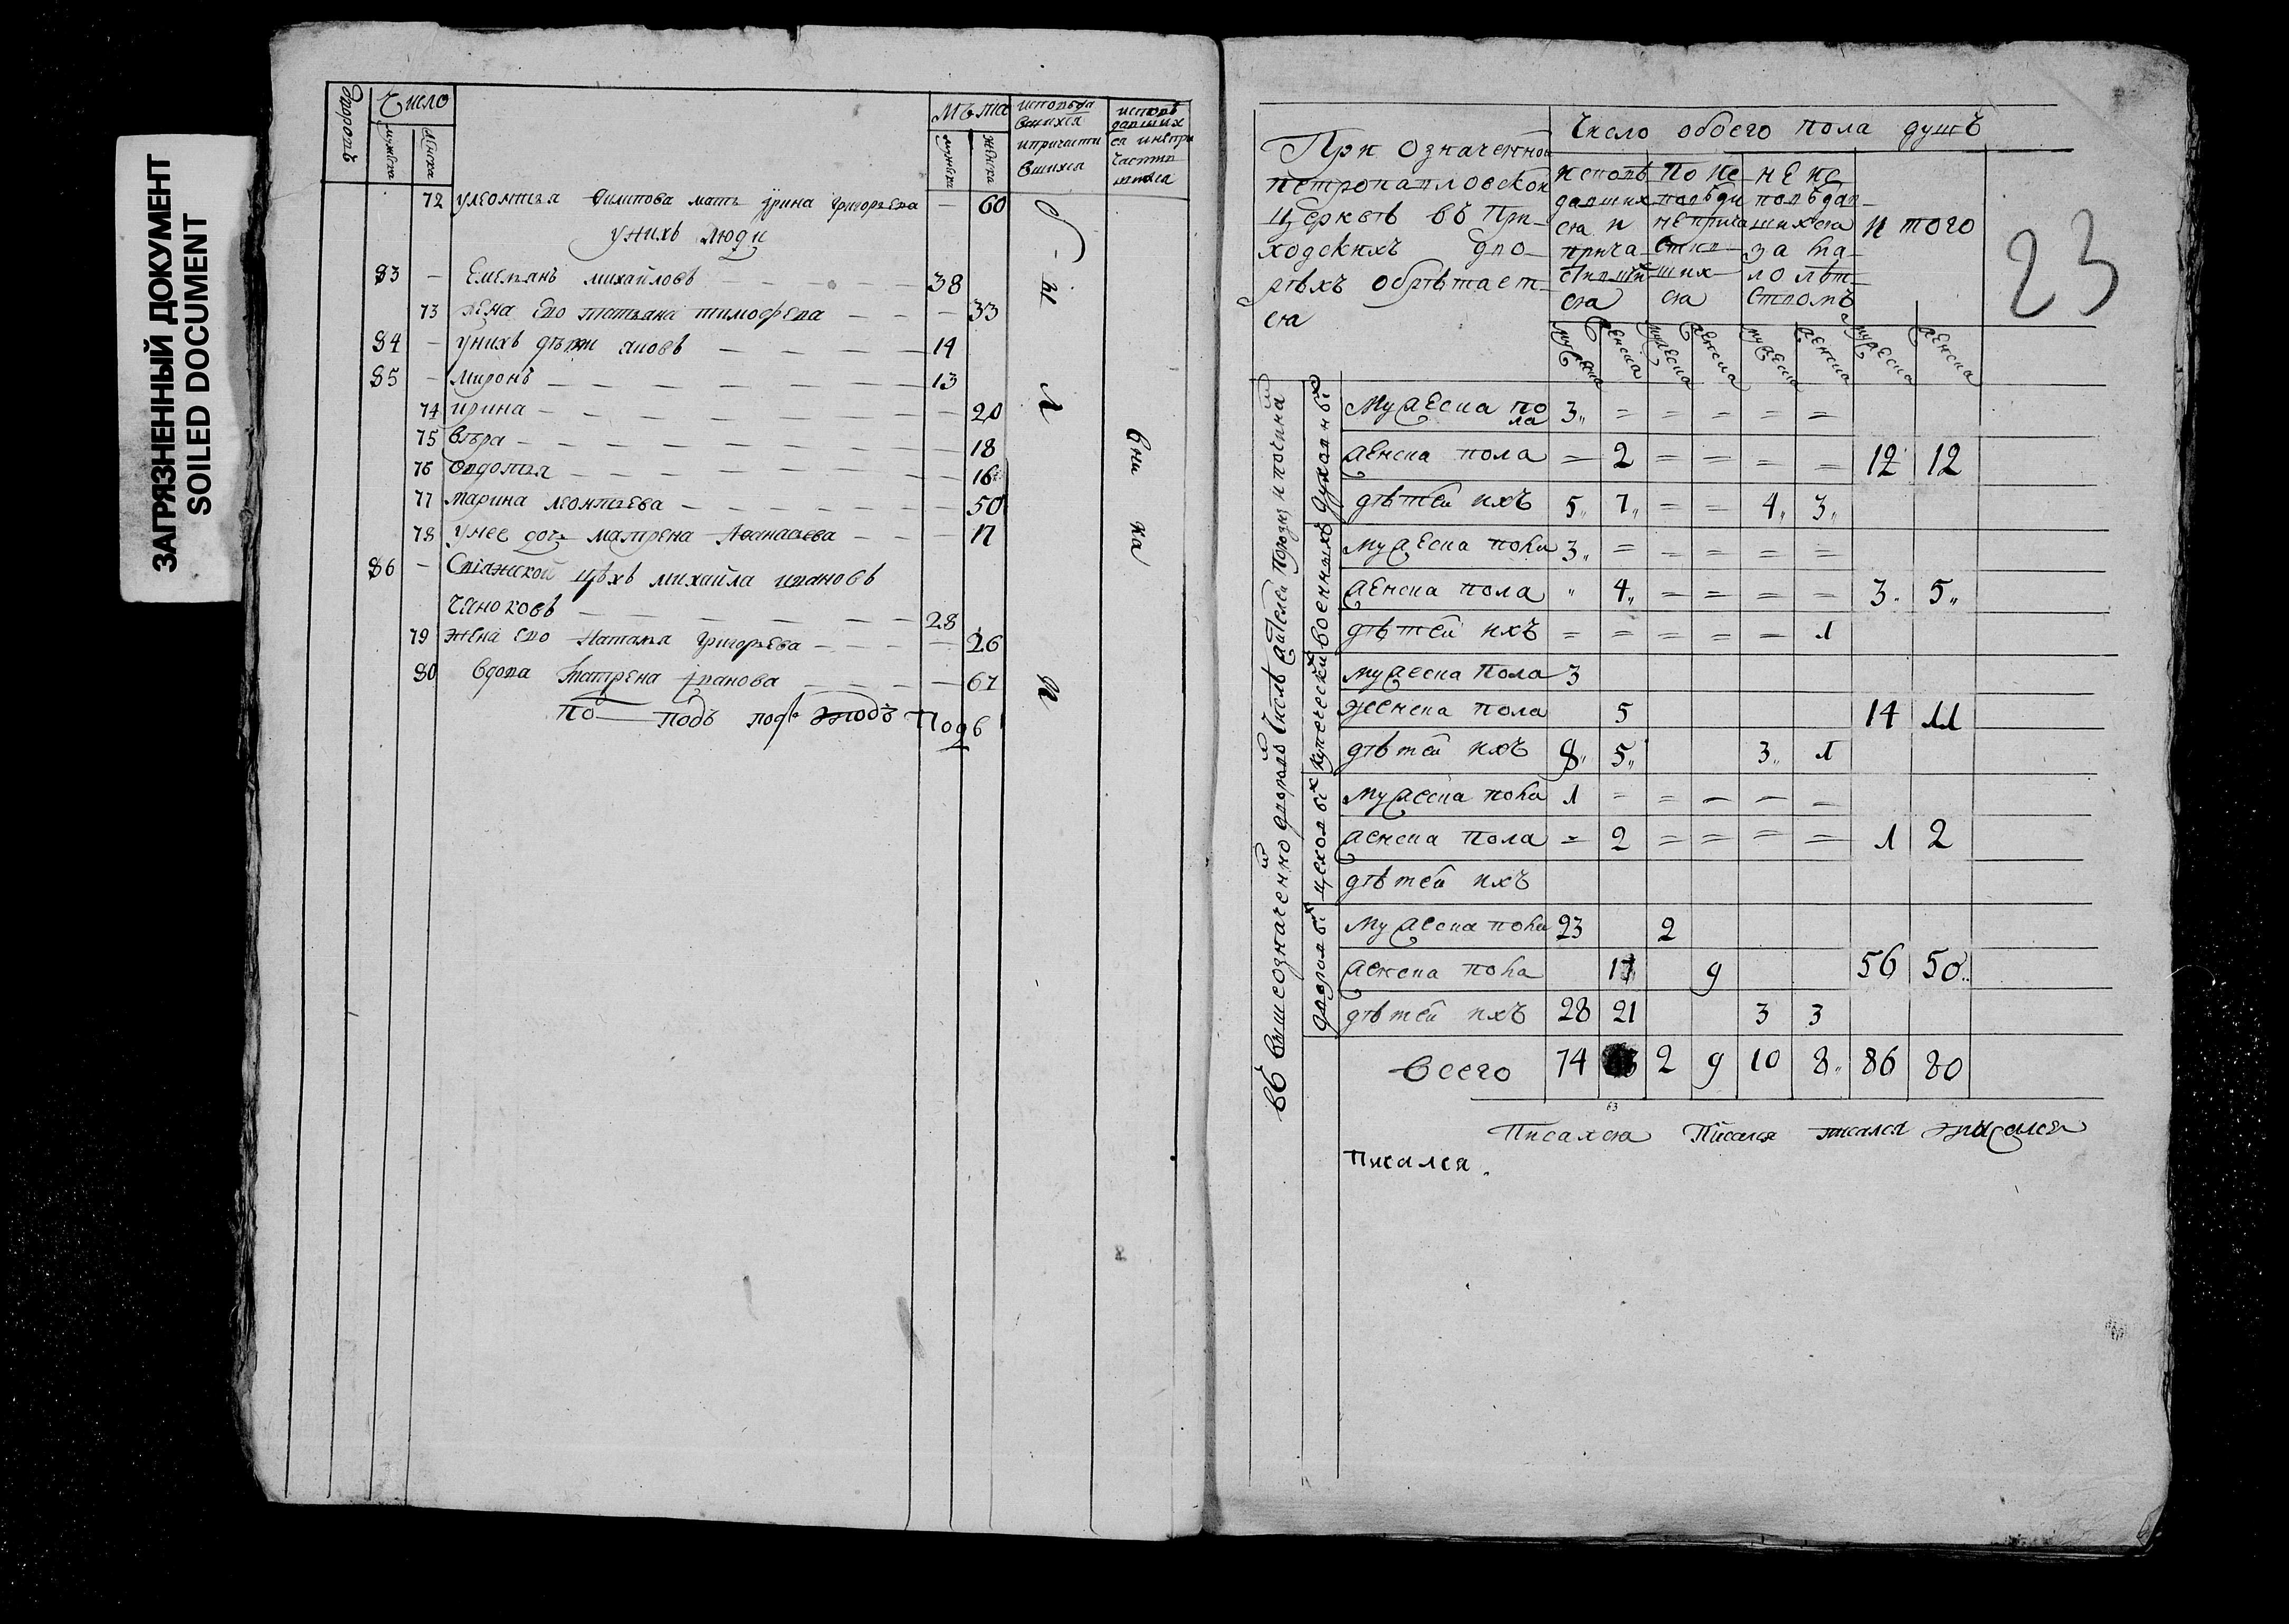 ЗАГРЯЗНЕННЫЙ ДОКУМЕНТ
SOILED DOCUMENT
Число
мужеска
женска
Лѣта
мужеска
женска
исповѣда
вшихся
ипричасти
вшихся
исповѣ
давших
ся инепри
части
вшихся
72 улеонтья Филипова мать ірина григорьева — 60
унихъ люди
83 — Емельянъ михайловъ — 38
73 жена ево татьяна тимофеева — 33
84 — унихъ дѣти яковъ — 14
85 — Миронъ — 13
74 ирина — 20
75 вѣра — 18
76 — 16
77 марина леонтьева — 50
78 унее дочь матрена Афанасьева — 17
86 — цѣхъ михайла ивановъ
28
79 жена ево Наталья григорьева — 26
80 вдова Матрена іванова — 67
по подъ подъ подъ Подъ
При означенной
петропавловской
церквѣ въ При-
ходскихъ дво-
рѣхъ обрѣтает-
ся
Число обоего пола душъ
исповѣ
давших
ся и
прича
стивши
ся
по ис
повѣди
неприча
стив
ших
ся
не ис
повѣдав
шихся
за ма
ло лѣт
ствомъ
итого
23
мужеска женска мужеска женска мужеска женска мужеска женска
въ вышеозначенно
духовных
мужеска по
ла 3 = = = = =
женска пола = 2 = = = = 12 12
дѣтей ихъ 5 7 = = 4 3
военныхъ
мужеска пола 3 = = = = =
женска пола 4 = = = = 3 5
дѣтей ихъ = = = = = 1
купечески
мужеска пола 3
женска пола 5 14 11
дѣтей ихъ 8 5 3 1
цеховых
мужеска пола 1 = = = = =
женска пола = 2 = = = = 1 2
дѣтей ихъ
дворовых
мужеска пола 23 2
женска пола 17 9 56 50
дѣтей ихъ 28 21 3 3
Всего 74 2 9 10 8 86 80
63
Писался Писался писался писался
писался.